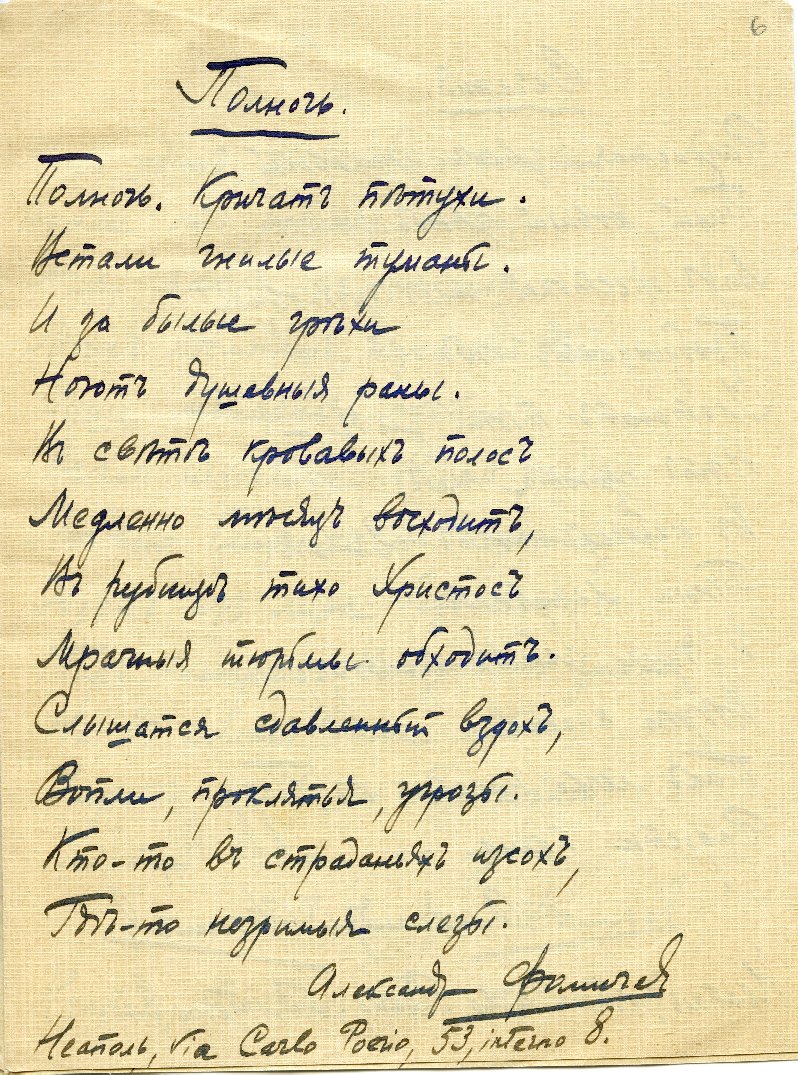 6
Полночь.
Полночь. Кричатъ пѣтухи.
Встали гнилые туманы.
И за былые грѣхи
Ноютъ душевныя раны.
Въ свѣтѣ кровавыхъ полосъ
Медленно мѣсяцъ восходитъ,
Въ рубищѣ тихо Христосъ
Мрачныя тюрьмы обходитъ.
Слышатся сдавленный вздохъ,
Вопли, проклятья, угрозы.
Кто-то въ страданьяхъ изсохъ,
Гдѣ-то незримыя слезы.
Александр Фомичев
Неаполь, via Carlo Poerio, 53, interno 8.